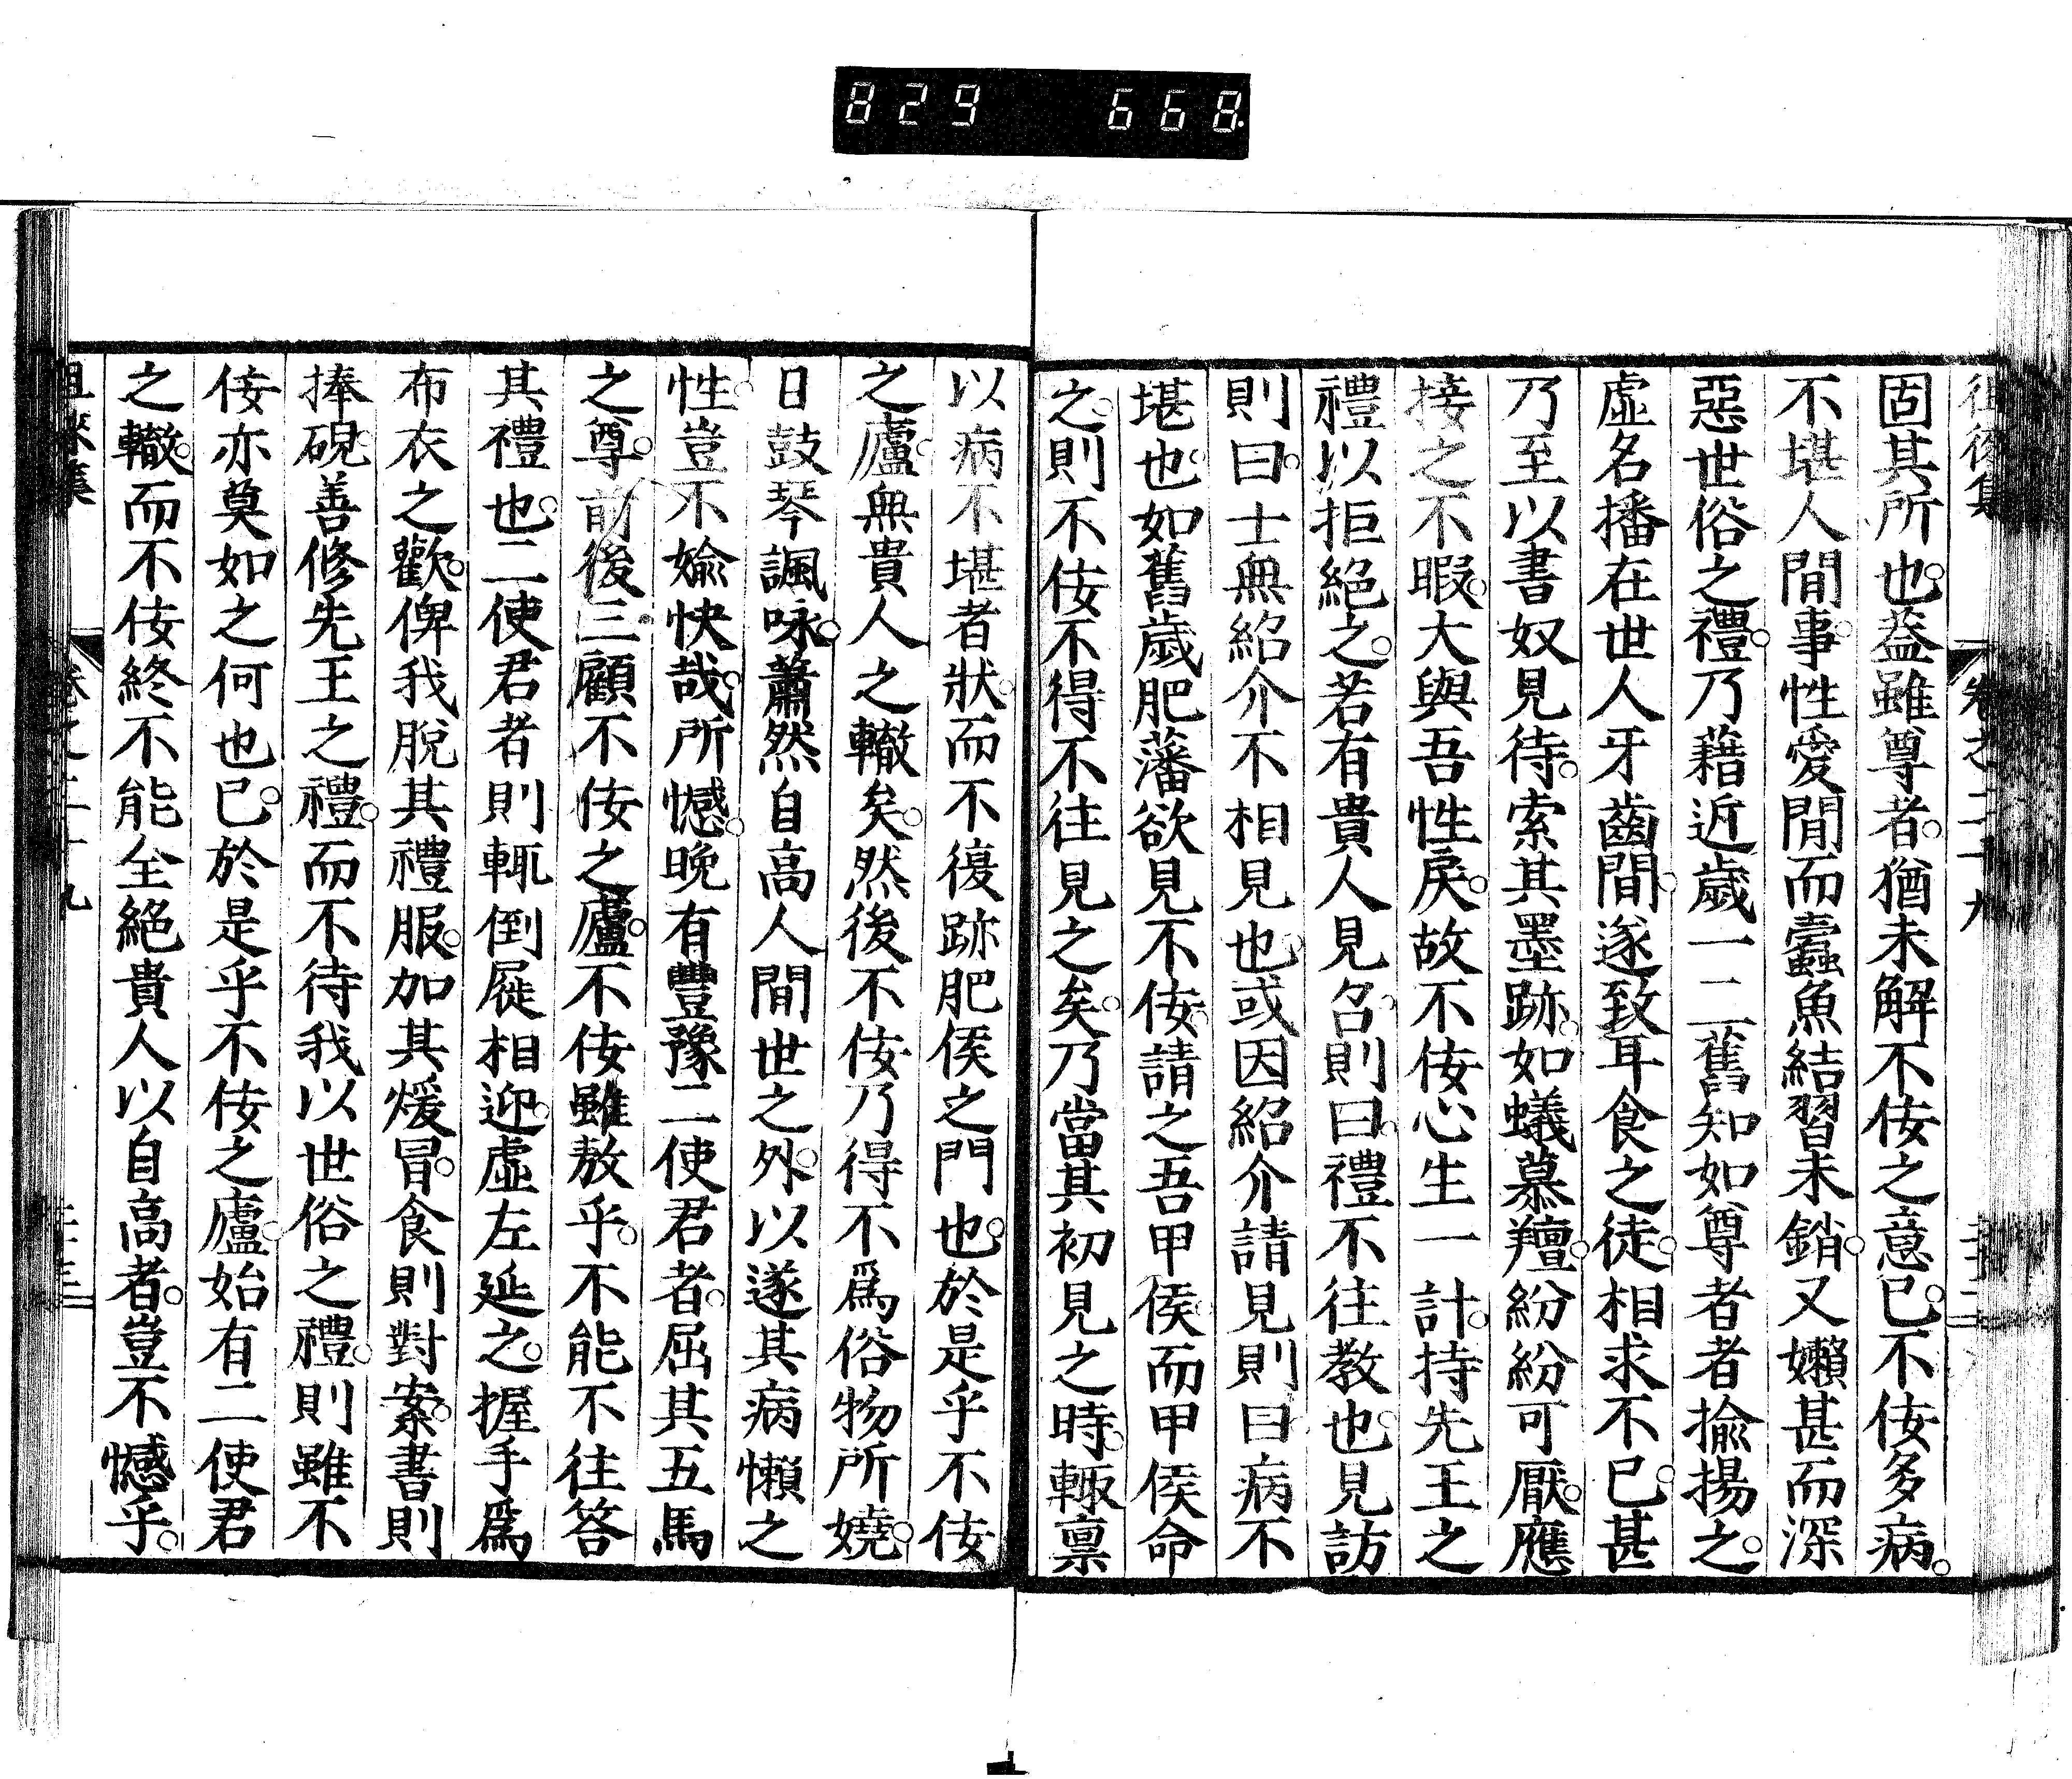 829 668
徂徠集 卷之二十九 二十二
固其所也。益雖尊者。猶未解不佞之意已。不佞多病。
不堪人間事。性愛閒而蠹魚結習未銷。又嬾甚而深
惡世俗之禮。乃藉近歲一二舊知如尊者者揄揚之。
虛名播在世人牙齒間。遂致耳食之徒。相求不已。甚
乃至以書奴見待。索其墨跡。如蟻慕羶。紛紛可厭。應
接之不暇。大與吾性戾。故不佞心生一計。持先王之
禮以拒絕之。若有貴人見召。則曰。禮不往教也。見訪
則曰。士無紹介不相見也。或因紹介請見則曰病不
堪也。如舊歲肥藩欲見不佞。請之吾甲侯。而甲侯命
之。則不佞不得不往見之矣。乃當其初見之時。輙稟
以病不堪者狀。而不復跡肥侯之門也。於是乎不佞
之廬。無貴人之轍矣。然後不佞乃得不爲俗物所嬈。
日鼓琴諷咏。蕭然自高人間世之外。以遂其病懶之
性。豈不婾快哉。所憾。晚有豐豫二使君者。屈其五馬
之尊。前後三顧不佞之廬。不佞雖敖乎。不能不往答
其禮也。二使君者則輒倒屣相迎。虛左延之。握手爲
布衣之歡。俾我脫其禮服。加其煖冒。食則對案。書則
捧硯。善修先王之禮。而不待我以世俗之禮。則雖不
佞亦莫如之何也已。於是乎不佞之廬。始有二使君
之轍。而不佞終不能全絕貴人以自高者。豈不憾乎。
徂徠集 卷之二十九 二十三